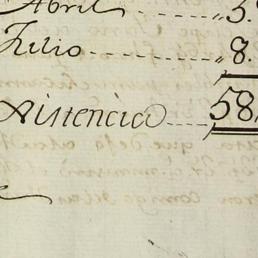 Abril ---- " 5.
Julio ---- " 8.
Existencia ---- 58